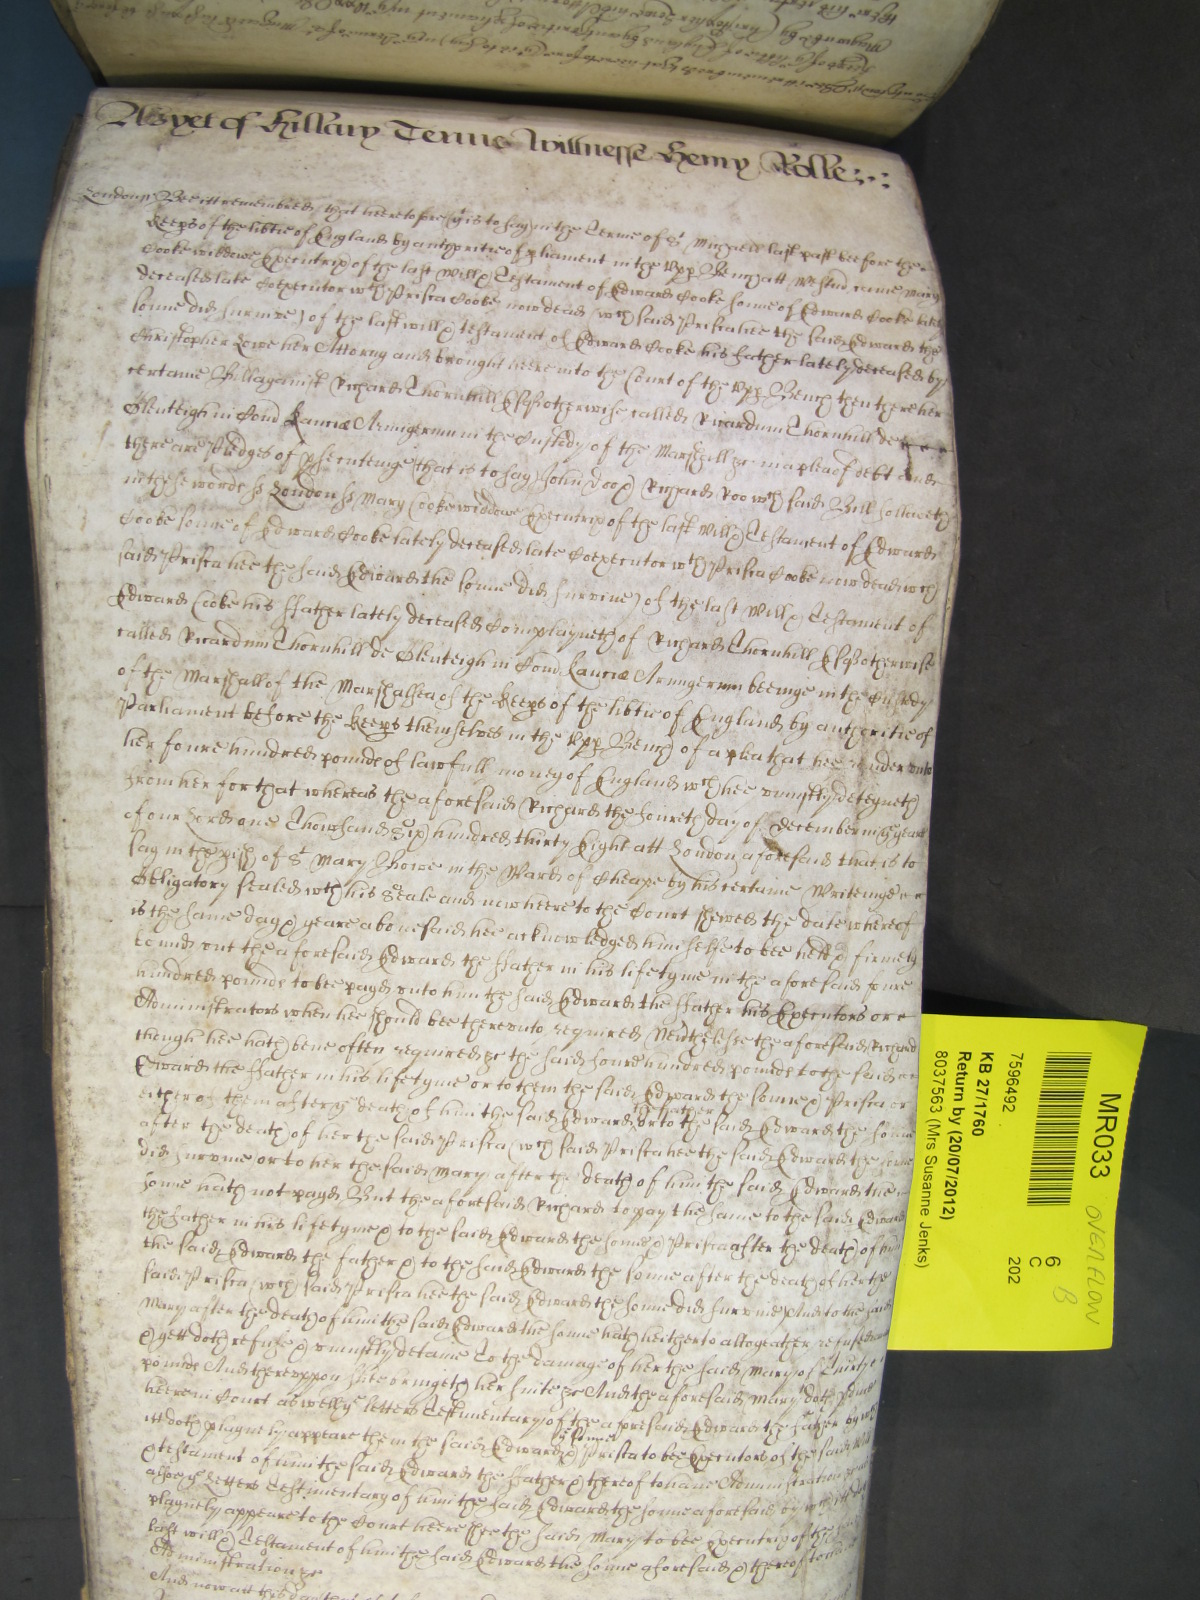 As yet of Hillary Terme Wittnesse Henry Rolle
London ss Bee itt remembred that heeretofore (yt is to say) in the Terme of St Michaell last past before the
Keeps of the libtie of England by authoritie of pliament in the Upp Bench att Westm came Mary
Cooke widdowe Executrix of the last will & Testament of Edward Cooke sonne of Edward Cooke
deceased late Coexecutor wth Prisca Cooke now dead (wch said Prisca hee the said Edward the
sonne did survive) of the last will & testament of Edward Cooke his father lately deceased by
Christopher Lowe her Attorny and brought heere into the Court of the Upp Bench then there her
certaine Bill against Richard Thornhill Esqr otherwise called Ricardum Thornhill de
Olenteigh in Com Kancie Armigerum in the Custody of the Marshall &c in a plea of debt And
there are Pledges of psecuteinge that is to say John Doo & Richard Roo wch said Bill followeth
in these words ss London ss Mary Cooke widdowe Executrix of the last Will & Testament of Edward
Cooke sonne of Edward Cooke lately deceased late Coexecutor wth Prisca Cooke now dead (wch
said Prisca hee the said Edward the sonne did survive) of the last Will & Testament of
Edward Cooke his ffather lately deceased Complayneth of Richard Thornhill Esqr otherwise
called Ricardum Thornhill de Olenteigh in Com Kancie Armigerum beeinge in the Custody
of the Marshall of the Marshalsea of the Keeps of the libtie of England by authoritie of
Parliament before the Keeps themselves in the Upp Bench of a plea that hee render unto
her foure hundred pounds of lawfull money of England wch hee uniustly deteyneth
from her for that whereas the aforesaid Richard the fourth day of December in the yeare
of our Lord one Thowsand Six hundred thirty Eight att London aforesaid that is to
say in the pish of St Mary Bowe in the Ward of Cheape by his certaine Writeinge
Obligatory sealed wth his Seale and now heere to the Court shewed the date whereof
is the same day & yeare abovesaid hee acknowledged himselfe to bee held & firmely
bound unt the aforesaid Edward the ffather in his lifetyme in the aforesaid foure
hundred pounds to bee payd unto him the said Edward the ffather his Executors or
Administrators when hee should bee thereunto required Nevthelesse the aforesaid Richard
though hee hath bene often required &c the said foure hundred pounds to the said
Edward the ffather in his lifetyme or to them the said Edward the sonne & Prisca or
either of them after ye death of him the said Edward the father or to the said Edward the sonne
after the death of her the said Prisca (wch said Prisca hee the said Edward the sonne
did survive) or to her the said Mary after the death of him the said Edward the
sonne hath not payd But the aforesaid Richard to pay the same to the said Edward
the ffather in his lifetyme & to the said Edward the sonne & Prisca after the death of him
the said Edward the ffather & to the said Edward the sonne after the death of her the
said Prisca (wch said Prisca hee the said Edward the sonne did survive) And to the said
Mary after the death of him the said Edward the sonne hath hitherto altogeather refused
& yett doth refuse & uniustly detaine To the damage of her the said Mary of Thirty
pounds And thereuppon shee bringeth her suite &c And the aforesaid Mary doth
heere in Court aswell ye letters Testimentary of the aforesaid Edward the ffather by wch
itt doth playnely appeare them the said Edward ye sonne & Prisca to bee Executors of the said Will
& testament of him the said Edward the ffather & thereof to have Administration
also ye Letters Testimentary of him the said Edward the sonne aforesaid by wch itt
playnely appeare to the Court heere shee the said Mary to bee Executrix of the
last will & Testament of him the said Edward the sonne aforesaid & thereof to
Administration &c
And now att this day that is
MR033
OVERFLOW
B
6
C
202
7596492
KB 27/1760
Return by (20/07/2012)
8037563 (Mrs Susanne Jenks)